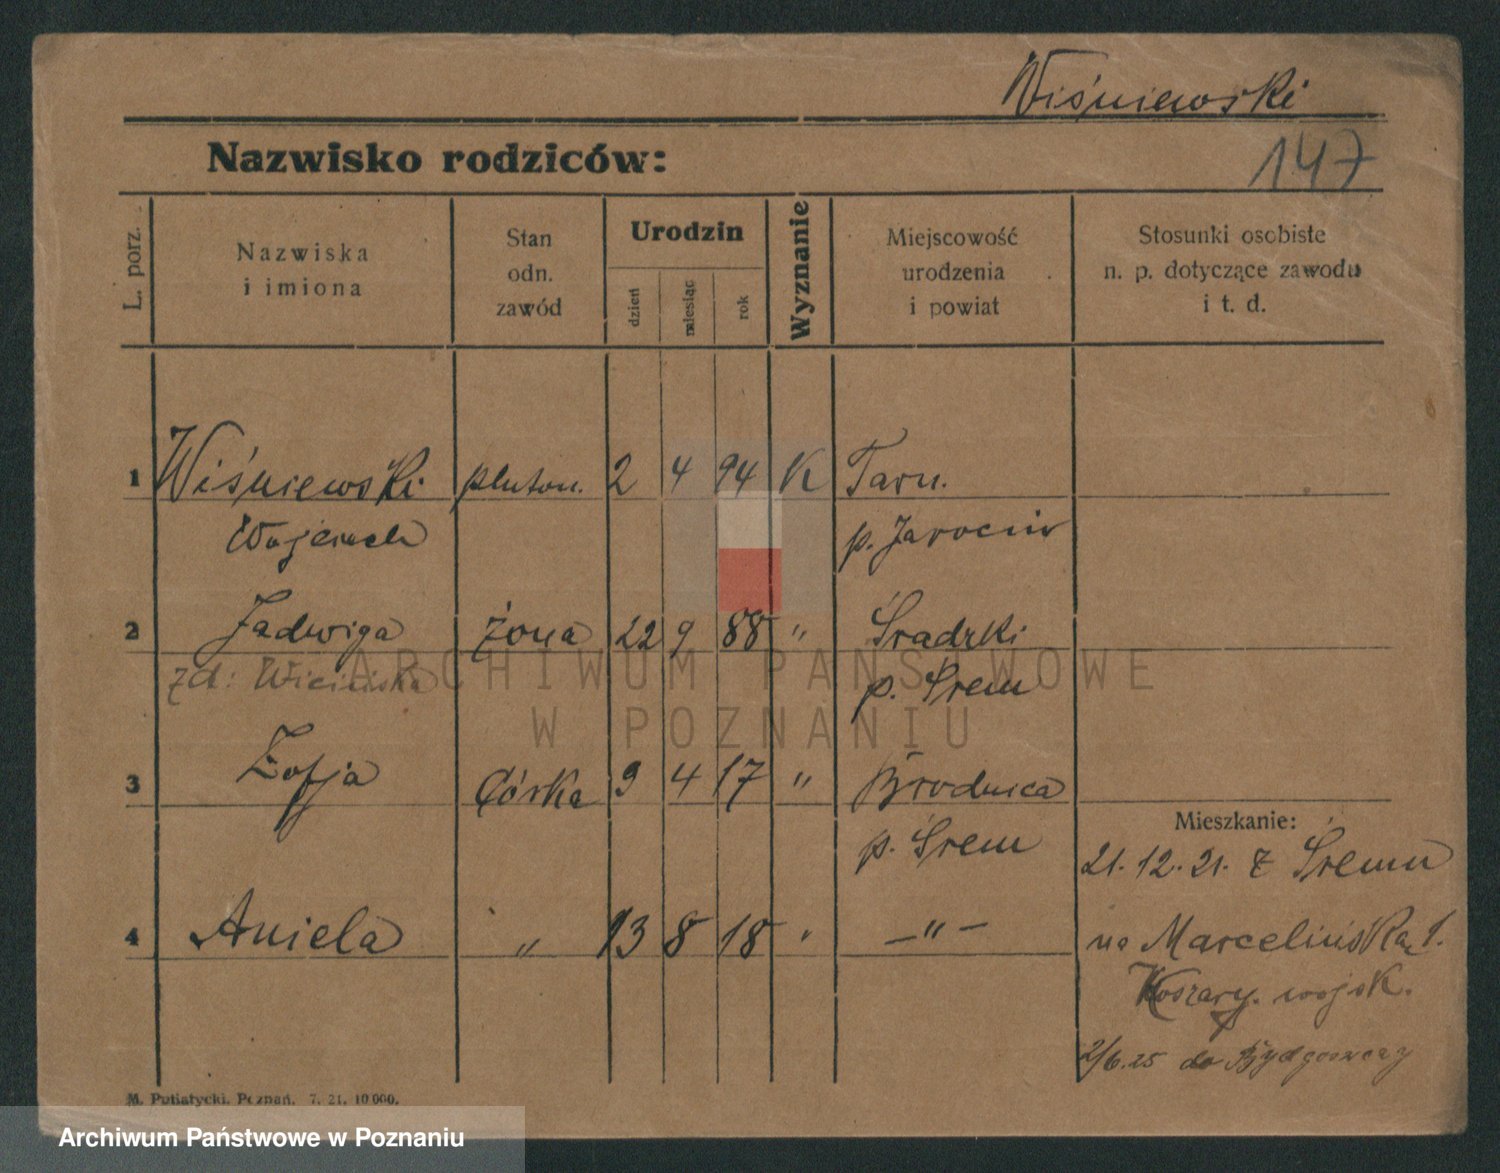 Wiśniewski
Nazwisko rodziców:
147
L. porz.
Nazwiska
i imiona
Stan
odn.
zawód
Urodzin
dzień
miesiąc
rok
Wyznanie
Miejscowość
urodzenia
i powiat
Stosunki osobiste
n. p. dotyczące zawodu
i t. d.
1 Wiśniewski pluton. 2 4 94 K Tarn.
Wojciech p. Jarocin
2 Jadwiga żona 22 9 88 " Śradzki
zd: p. Śrem
3 Zofja Córka 9 4 17 " Brodnica
p. Śrem
Mieszkanie:
21. 12. 21. z Śremu
4 Aniela " 13 8 18 " — " —
na Marcelińską 1.
Koszary. wojsk.
2/6.25 do Bydgoszczy
M. Putiatycki, Poznań. 7. 21. 10 000.
ARCHIWUM PAŃSTWOWE
W POZNANIU
Archiwum Państwowe w Poznaniu